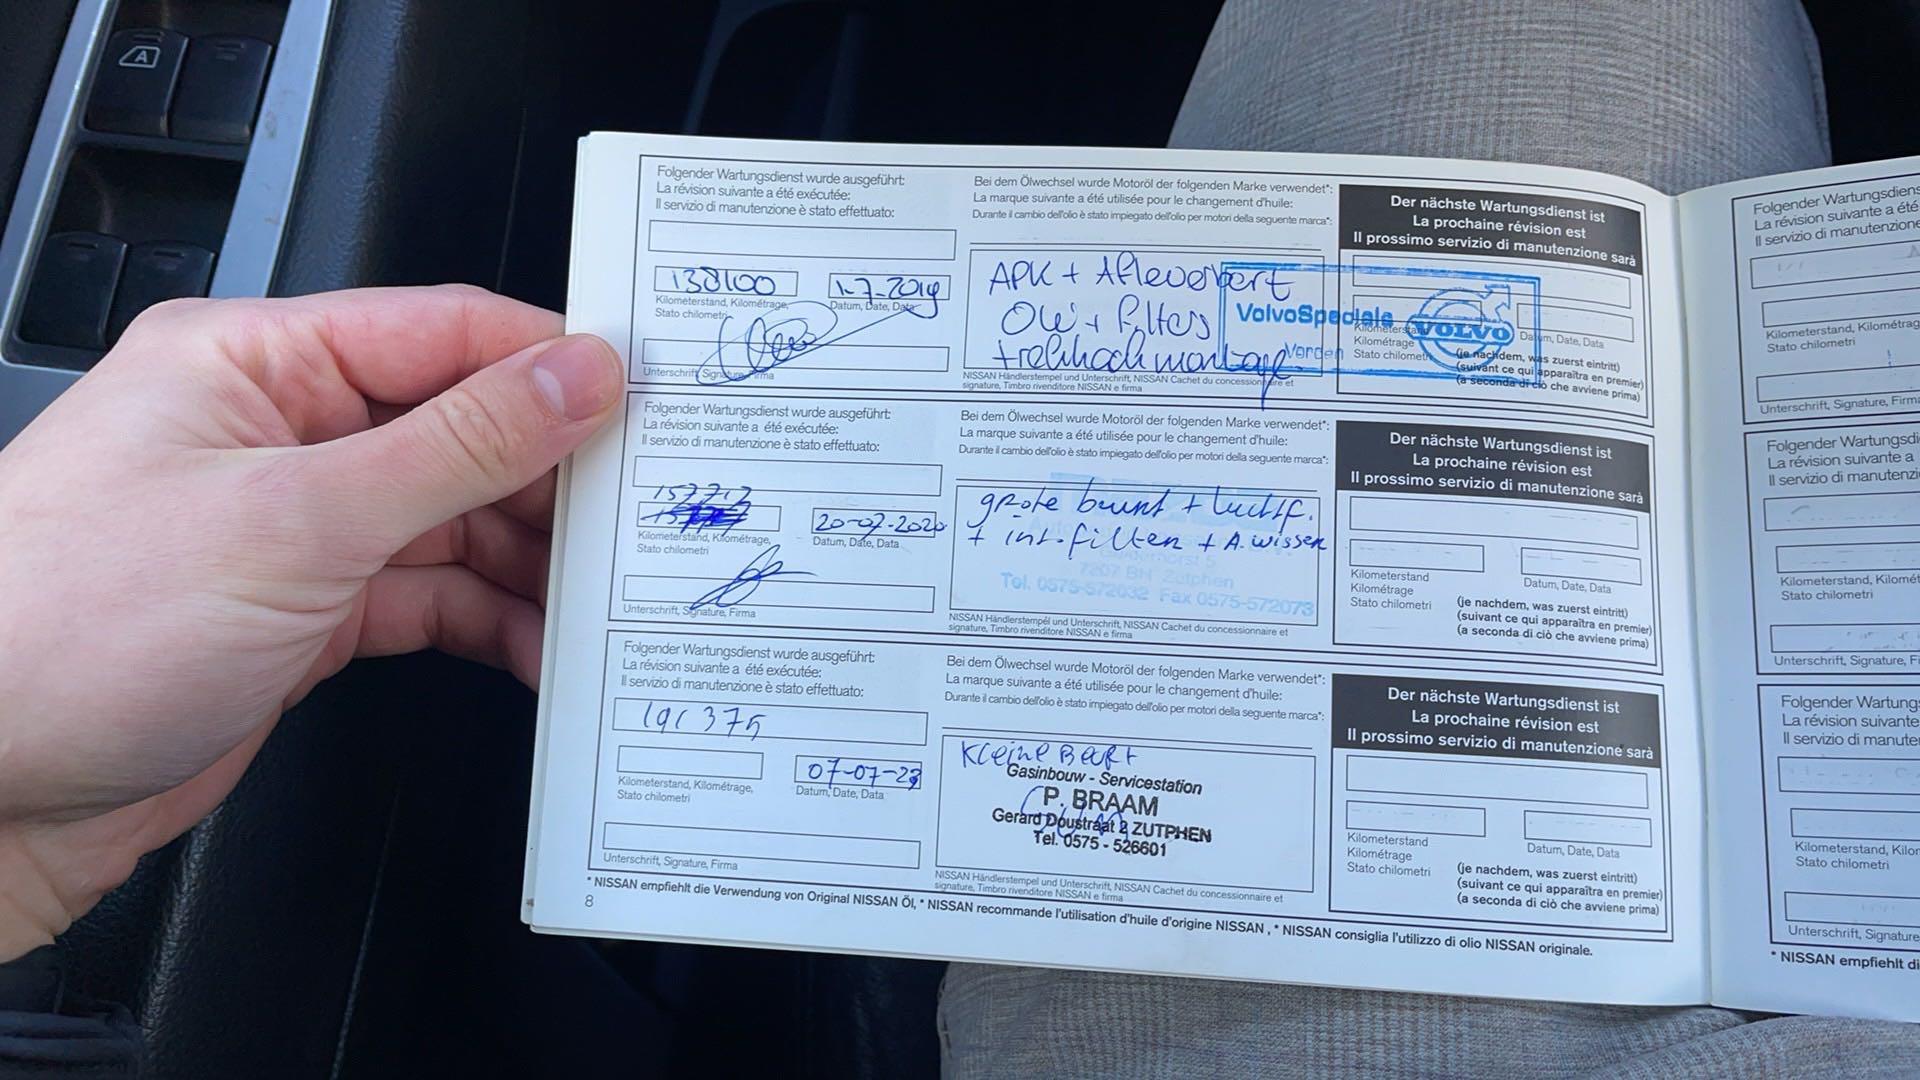 Folgender Wartungsdienst wurde ausgeführt:
La révision suivante a été exécutée:
Il servizio di manutenzione è stato effettuato:
138100
1-7-2019
Kilometerstand, Kilométrage,
Stato chilometri
Datum, Date, Data
Unterschrift, Signature, Firma
Bei dem Ölwechsel wurde Motoröl der folgenden Marke verwendet*:
La marque suivante a été utilisée pour le changement d'huile:
Durante il cambio dell'olio è stato impiegato dell'olio per motori della seguente marca*:
APK + Afleverbeurt
OW + filters
trekhaak montage
VolvoSpeciale
VOLVO
Vorden
NISSAN Händlerstempel und Unterschrift, NISSAN Cachet du concessionnaire et
signature, Timbro rivenditore NISSAN e firma
Der nächste Wartungsdienst ist
La prochaine révision est
Il prossimo servizio di manutenzione sarà
Kilometerstand
Kilométrage
Stato chilometri
Datum, Date, Data
(je nachdem, was zuerst eintritt)
(suivant ce qui apparaîtra en premier)
(a seconda di ciò che avviene prima)
Folgender Wartungsdienst wurde ausgeführt:
La révision suivante a été exécutée:
Il servizio di manutenzione è stato effettuato:
157717
20-07-2020
Kilometerstand, Kilométrage,
Stato chilometri
Datum, Date, Data
Unterschrift, Signature, Firma
Bei dem Ölwechsel wurde Motoröl der folgenden Marke verwendet*:
La marque suivante a été utilisée pour le changement d'huile:
Durante il cambio dell'olio è stato impiegato dell'olio per motori della seguente marca*:
grote beurt + luchtf.
+ int.filter + A.wissen
7207 BH Zutphen
Tel. 0575-572032 Fax 0575-572073
NISSAN Händlerstempel und Unterschrift, NISSAN Cachet du concessionnaire et
signature, Timbro rivenditore NISSAN e firma
Der nächste Wartungsdienst ist
La prochaine révision est
Il prossimo servizio di manutenzione sarà
Kilometerstand
Kilométrage
Stato chilometri
Datum, Date, Data
(je nachdem, was zuerst eintritt)
(suivant ce qui apparaîtra en premier)
(a seconda di ciò che avviene prima)
Folgender Wartungsdienst wurde ausgeführt:
La révision suivante a été exécutée:
Il servizio di manutenzione è stato effettuato:
191375
07-07-23
Kilometerstand, Kilométrage,
Stato chilometri
Datum, Date, Data
Unterschrift, Signature, Firma
Bei dem Ölwechsel wurde Motoröl der folgenden Marke verwendet*:
La marque suivante a été utilisée pour le changement d'huile:
Durante il cambio dell'olio è stato impiegato dell'olio per motori della seguente marca*:
Kleine Beurt
Gasinbouw - Servicestation
P. BRAAM
Gerard Doustraat 2 ZUTPHEN
Tel. 0575 - 526601
NISSAN Händlerstempel und Unterschrift, NISSAN Cachet du concessionnaire et
signature, Timbro rivenditore NISSAN e firma
Der nächste Wartungsdienst ist
La prochaine révision est
Il prossimo servizio di manutenzione sarà
Kilometerstand
Kilométrage
Stato chilometri
Datum, Date, Data
(je nachdem, was zuerst eintritt)
(suivant ce qui apparaîtra en premier)
(a seconda di ciò che avviene prima)
* NISSAN empfiehlt die Verwendung von Original NISSAN Öl, * NISSAN recommande l'utilisation d'huile d'origine NISSAN, * NISSAN consiglia l'utilizzo di olio NISSAN originale.
8
Folgender Wartungsdiens
La révision suivante a été
Il servizio di manutenzione
Kilometerstand, Kilométrag
Stato chilometri
Unterschrift, Signature, Firma
Folgender Wartungsdi
La révision suivante a
Il servizio di manutenzi
Kilometerstand, Kilomét
Stato chilometri
Unterschrift, Signature, Fi
Folgender Wartung
La révision suivante
Il servizio di manute
Kilometerstand, Kilor
Stato chilometri
Unterschrift, Signature
* NISSAN empfiehlt di